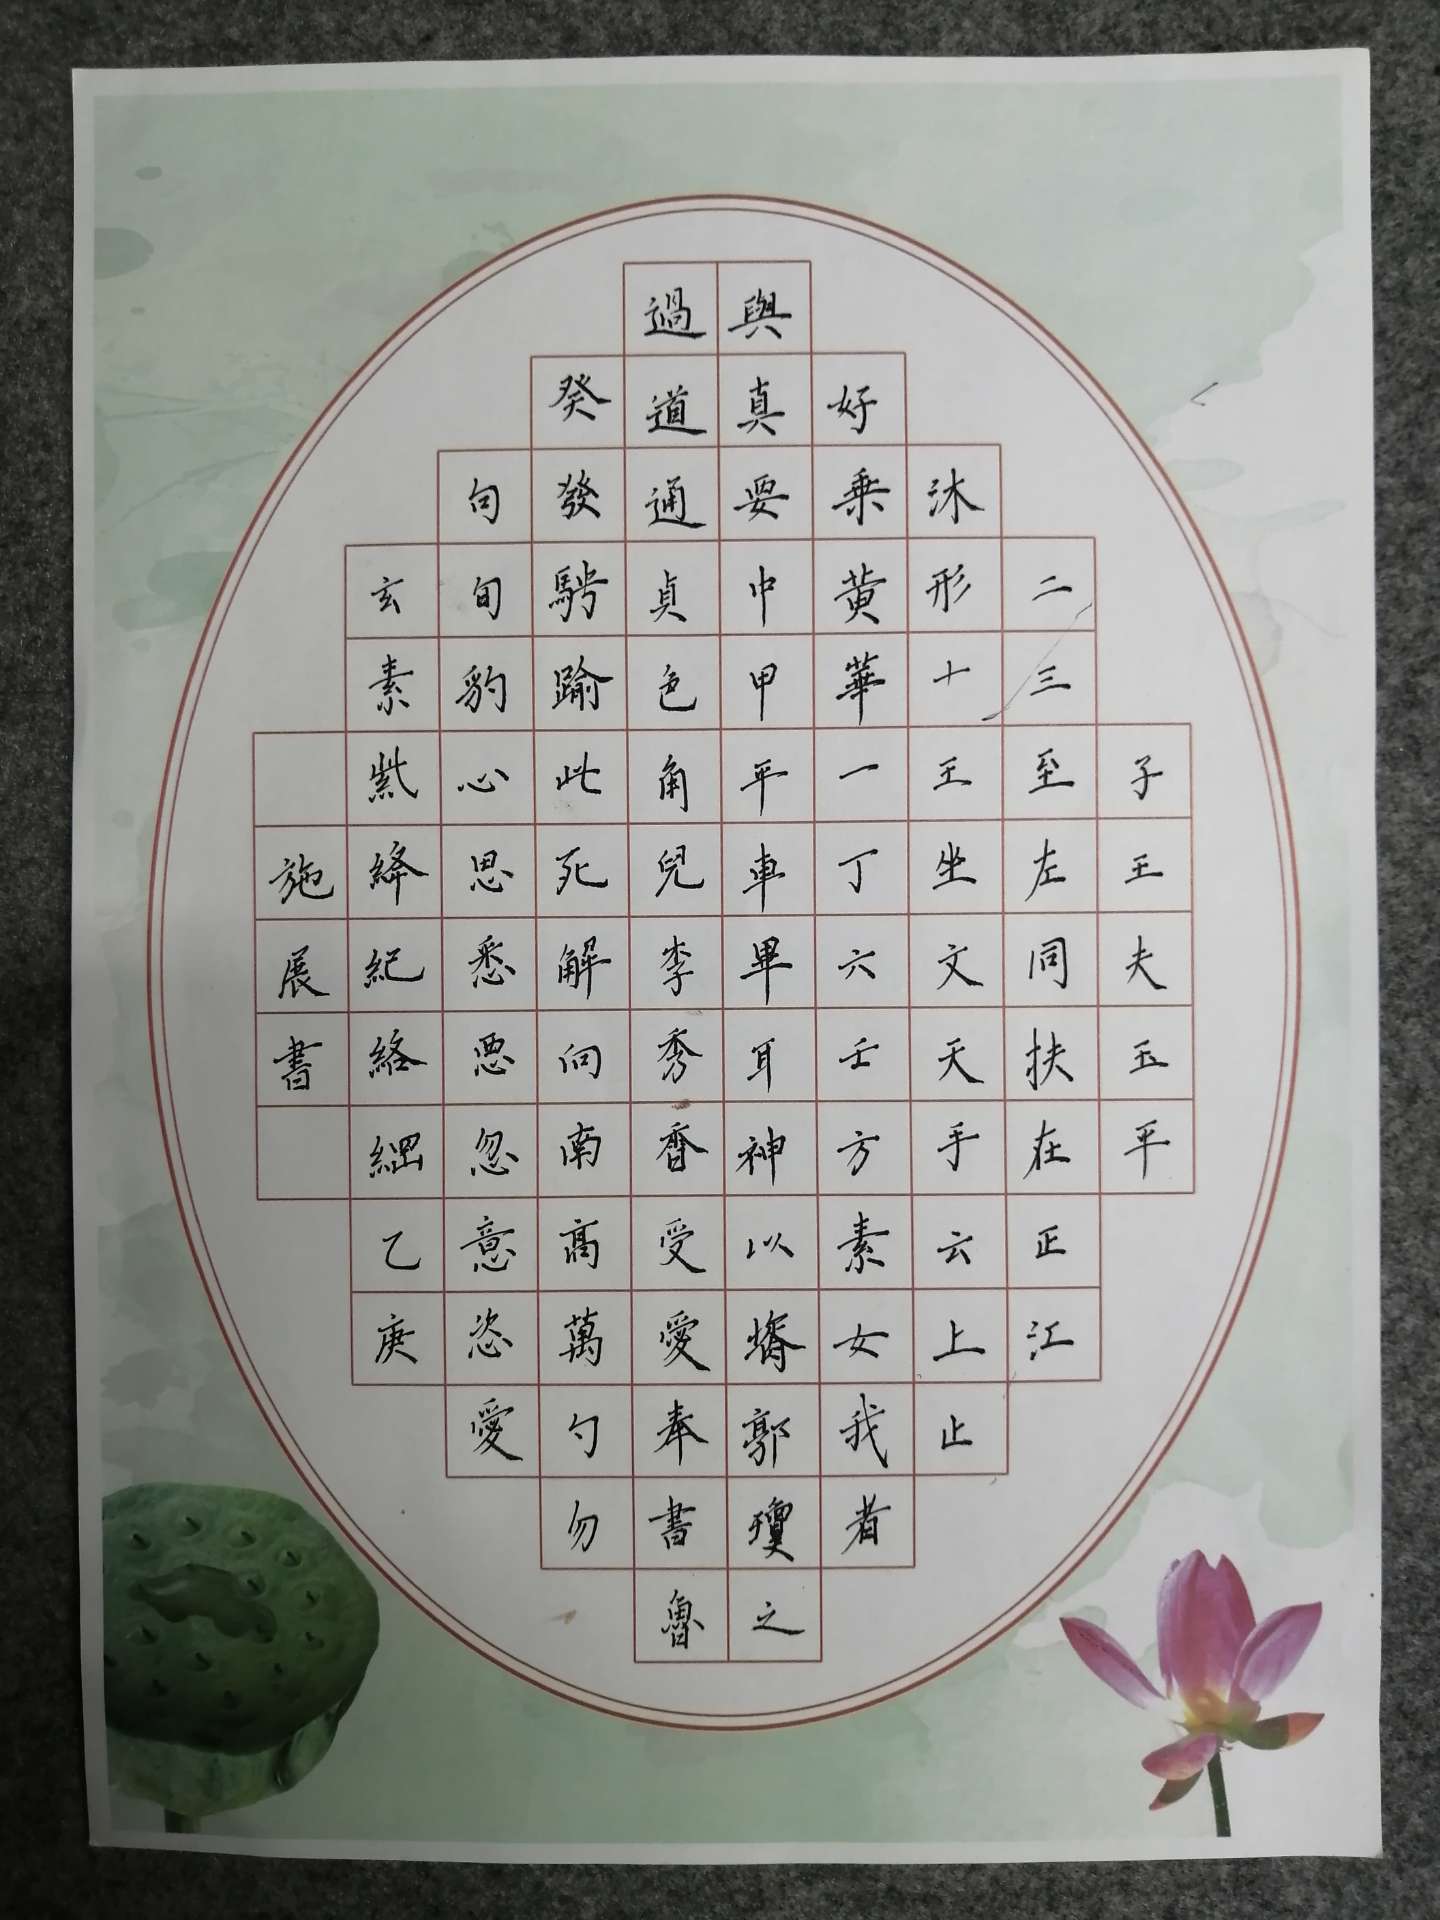 子王夫玉平
二三至左同扶在正江
沐形十王坐文天手云上止
好乘黄華一丁六壬方素女我者
與真要中甲平車畢耳神以壻郭瓊之
過道通貞色角兒李秀香受愛奉書魯
癸發騁踰此死解向南高萬勺勿
句旬豹心思悉惡忽意恣愛
玄素紫絳紀絡綱乙庚
施展書